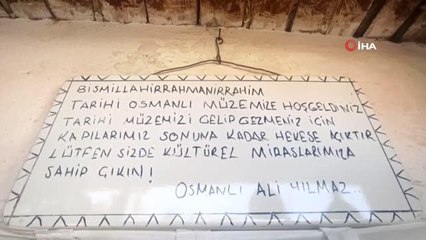 İHA
BİSMİLLAHİRRAHMANİRRAHİM
TARİHİ OSMANLI MÜZEMİZE HOŞGELDİNİZ
TARİHİ MÜZEMİZİ GELİP GEZMENİZ İÇİN
KAPILARIMIZ SONUNA KADAR HEKESE AÇIKTIR
LÜTFEN SİZDE KÜLTÜREL MİRASLARIMIZA
SAHİP ÇIKIN!
OSMANLI ALİ YILMAZ...